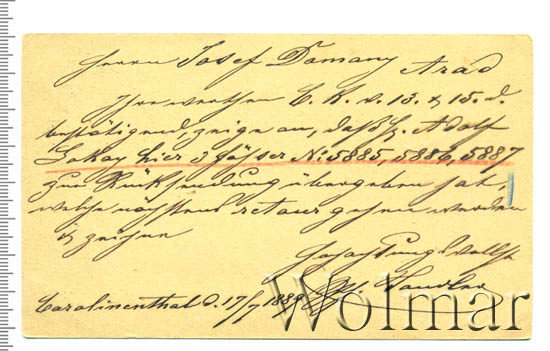 Herrn Josef Domany Arad
Ihre werthen C. K. v. 13. & 15. d.
bestätigend, zeige an, daß H. Adolf
Lokay hier 3 Fässer No. 5885, 5886, 5887
zur Rücksendung übergeben hat,
welche nächstens retour gehen werden
& zeichne
Hochachtungsvollst
Carolinenthal d. 17/7 1889
Wolmar